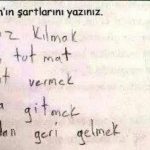 'ın şartlarını yazınız.
z kılmak
tutmat
t vermek
a gitmek
dan geri gelmek